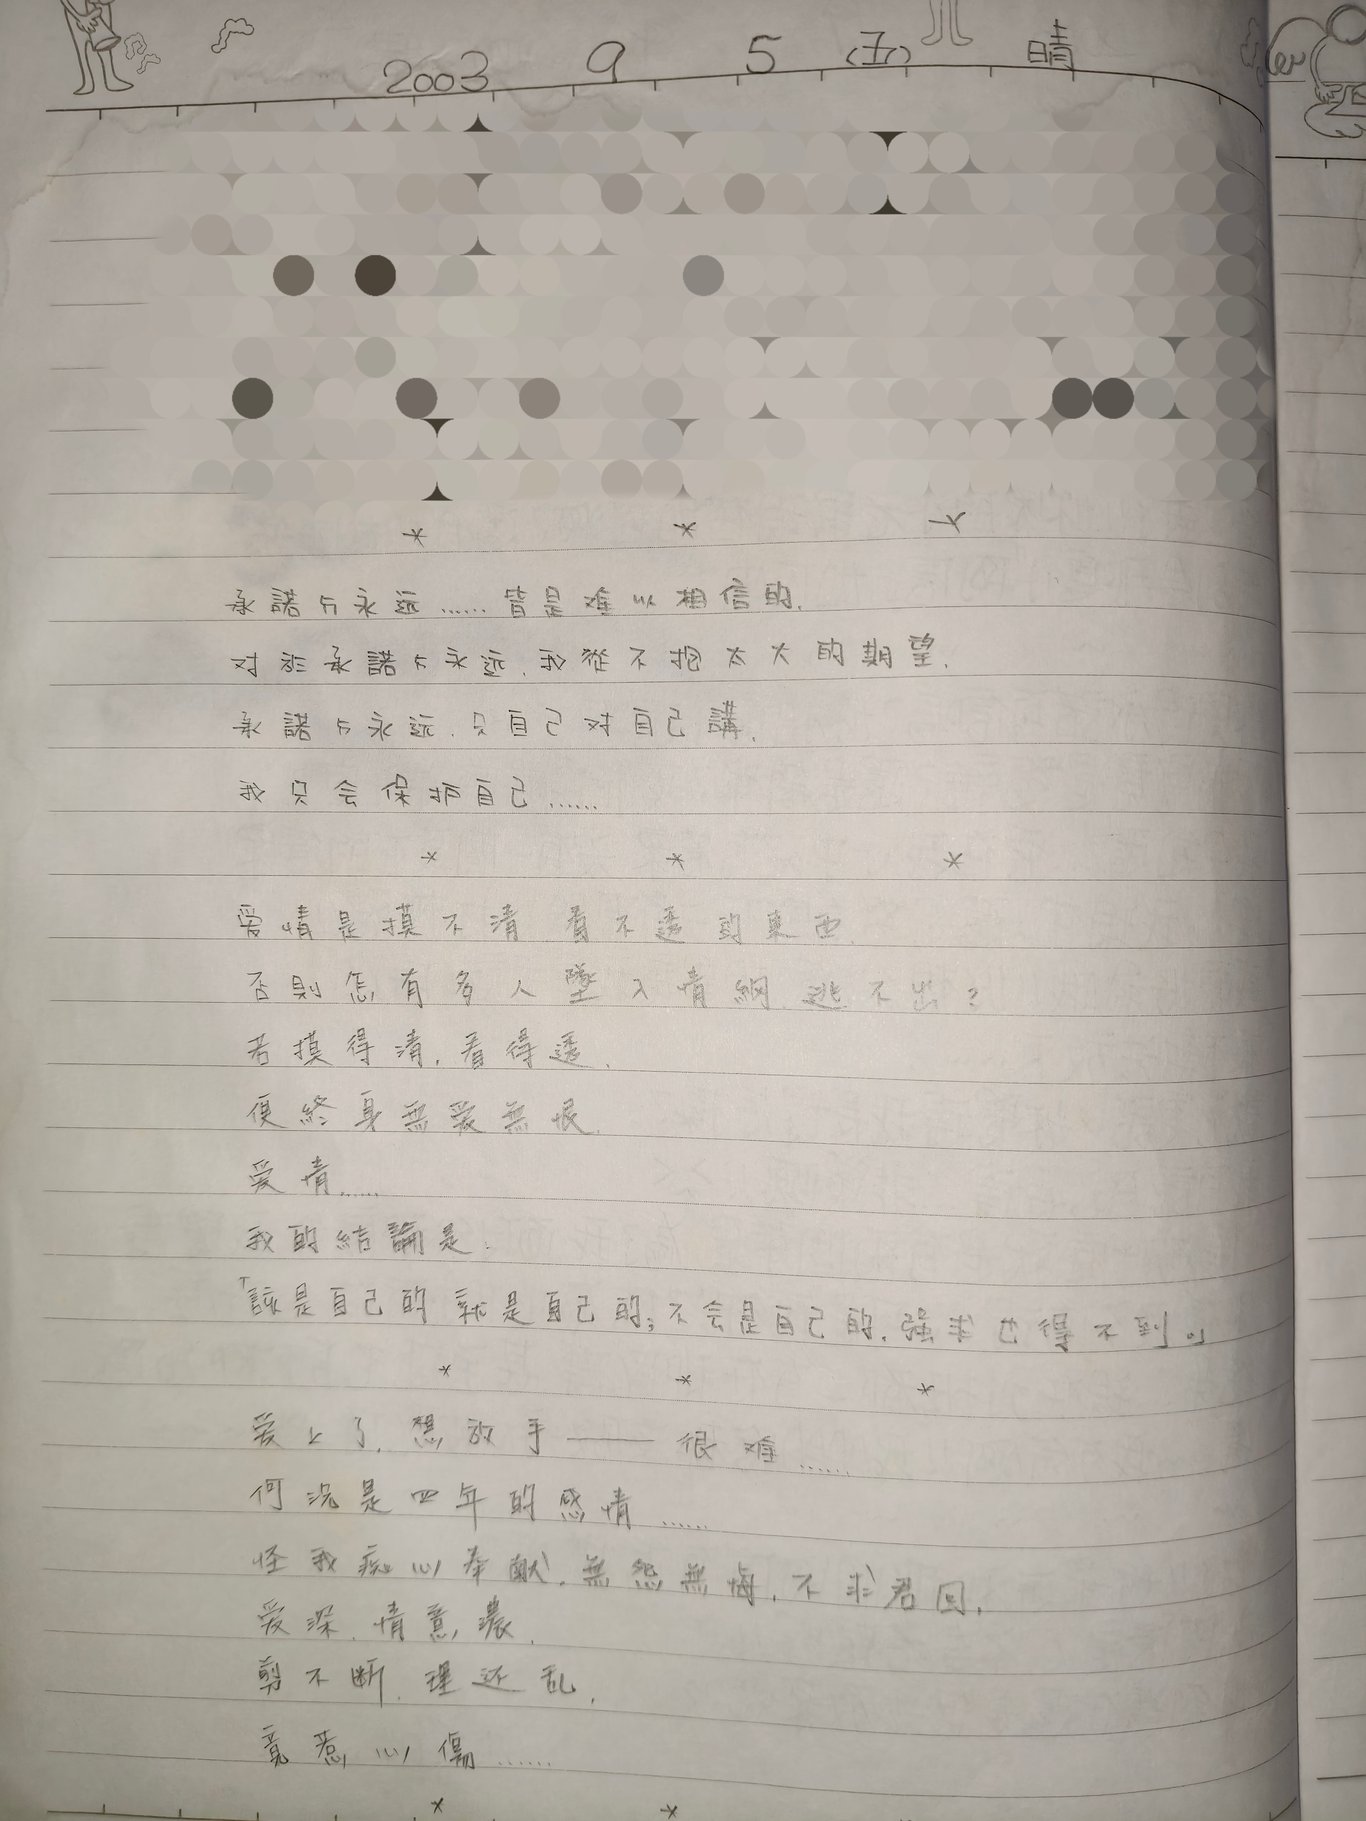 2003 9 5 (五) 晴
* * *
承諾与永远……皆是难以相信的.
对於承諾与永远,我從不抱太大的期望.
承諾与永远,只自己对自己講.
我只会保护自己……
* * *
爱情是摸不清 看不透的東西.
否則怎有多人墜入情網,逃不出?
若摸得清,看得透,
便終身無爱無恨.
爱情……
我的結論是:
「該是自己的 就是自己的;不会是自己的,强求也得不到。」
* * *
爱上了,想放手——很难……
何况是四年的感情……
怪我痴心奉献,無怨無悔,不求君回,
爱深,情意濃,
剪不断,理还乱,
竟惹心傷……
* *